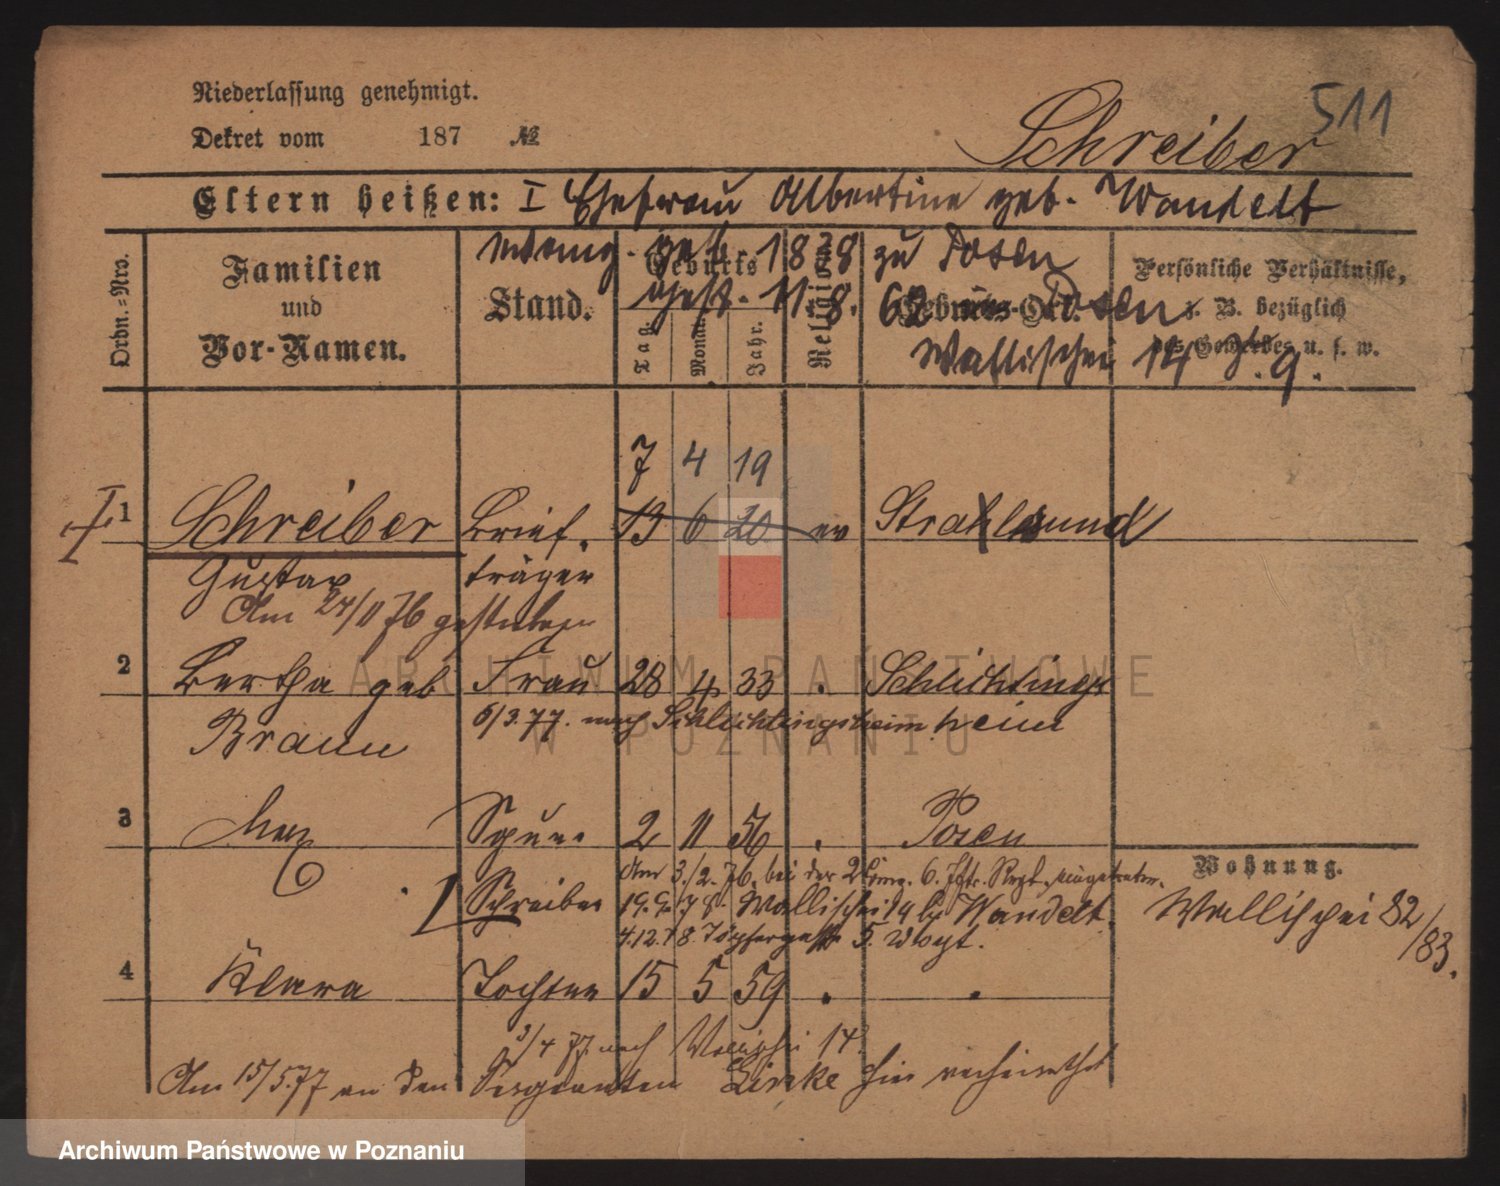 Niederlassung genehmigt.
511
Dekret vom 187 №
Schreiber
Eltern heißen: I Ehefrau Albertine geb. Wandelt
geb. 1828 zu Posen
gest. 11.8. 62 Posen
Wallischei 14
Ordn.-Nro.
Familien
und
Vor-Namen.
Stand.
Geburts
Tag.
Monat.
Jahr.
Religion
Geburts-Ort.
Persönliche Verhältnisse,
z. B. bezüglich
des Gewerbes u. s. w.
7 4 19
1 Schreiber Brief- 13 6 20 ev Stralsund
Gustav träger
Am 24/11 76 gestorben
2 Bertha geb Frau 28 4 33 . Schlichtings
Braun 6/3.77. nach Schlichtingsheim heim
3 Max Sohn 2 11 56 . Posen
Am 3./2. 76. bei der 2 6.
Wohnung.
Schreiber 19.9.78. Wallischei 14 by Wandelt.
Wallischei 82/83.
4.12.78 Töpfergasse 5.
4 Klara Tochter 15 5 59 . .
3/4 77. nach Wallischei 14.
Am 15/5.77 an den Sergeanten hier verheirathet
ARCHIWUM PAŃSTWOWE
W POZNANIU
Archiwum Państwowe w Poznaniu